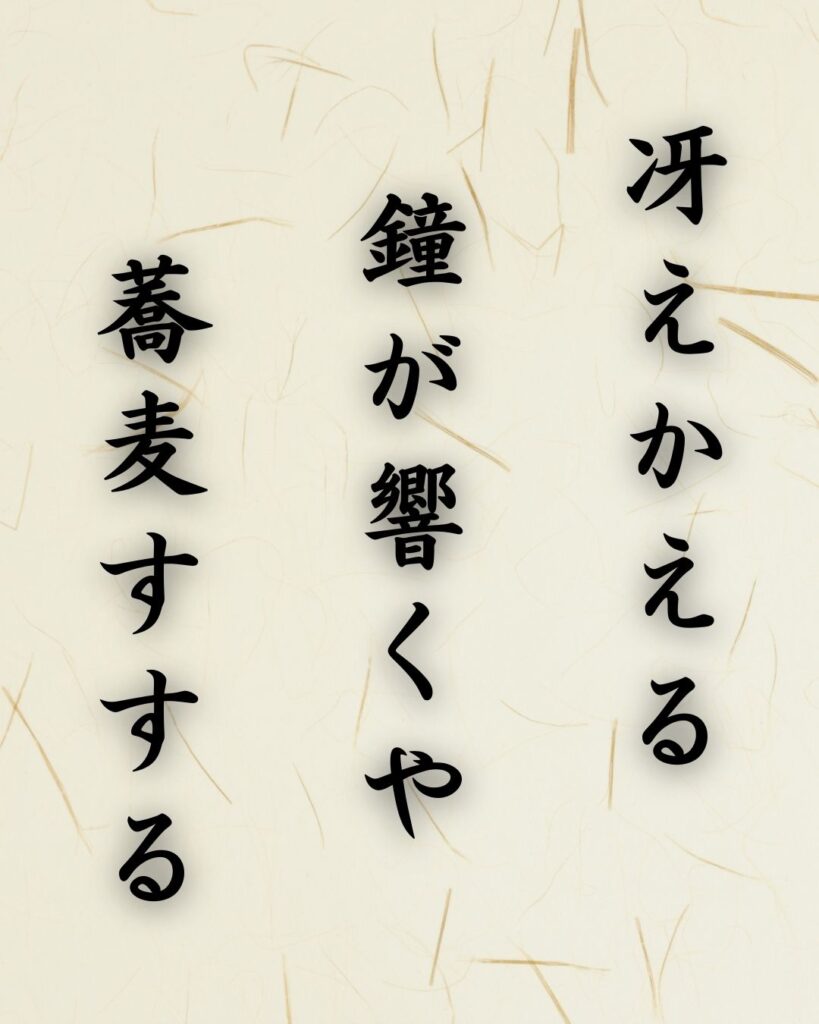 冴えかえる
鐘が響くや
蕎麦すする